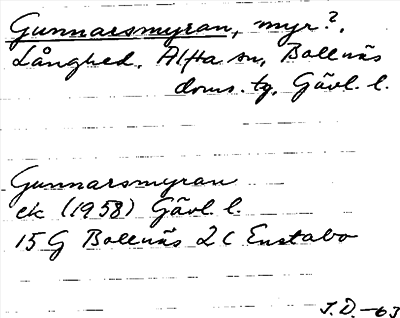 Gunnarsmyran, myr?,
Långhed. Alfta sn, Bollnäs
doms. tg, Gävl. l.
Gunnarsmyran
ek (1958) Gävl. l.
15 G Bollnäs 2 c Enstabo
J.D. -63